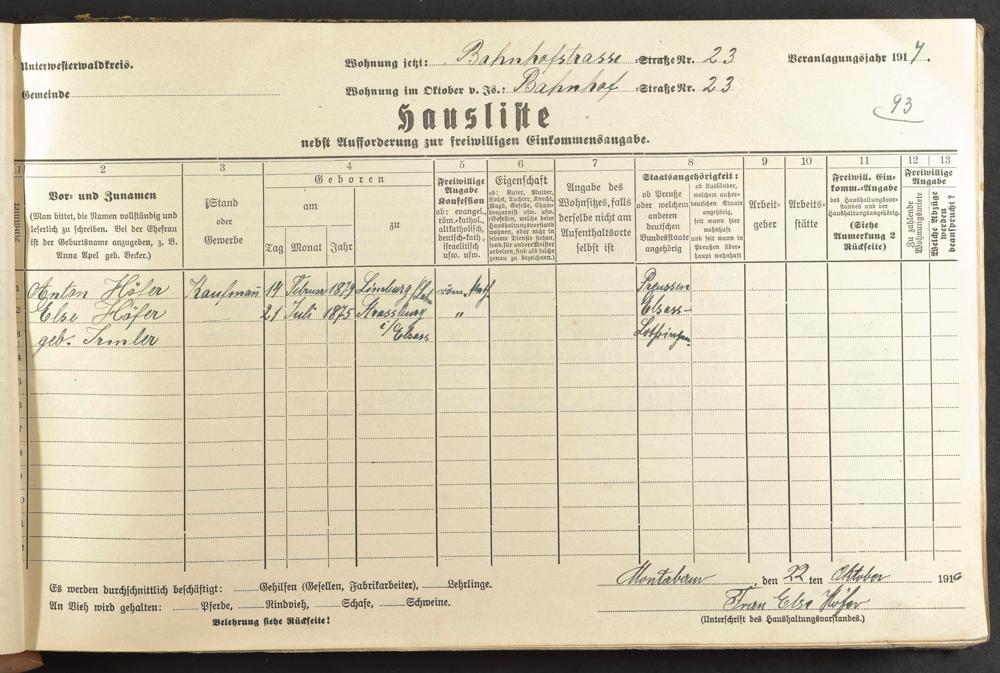 Unterwesterwaldkreis.
Wohnung jetzt: Bahnhofstrasse Straße Nr. 23
Veranlagungsjahr 1917.
Gemeinde
Wohnung im Oktober v. Js.: Bahnhof Straße Nr. 23
93
Hausliste
nebst Aufforderung zur freiwilligen Einkommensangabe.
1 2 3 4 5 6 7 8 9 10 11 12 13
Nummer
Vor- und Zunamen
(Man bittet, die Namen vollständig und
leserlich zu schreiben. Bei der Ehefrau
ist der Geburtsname anzugeben, z. B.
Anna Apel geb. Becker.)
Stand
oder
Gewerbe
Geboren
am
zu
Tag Monat Jahr
Freiwillige
Angabe
Konfession
ob: evangel.,
röm.-kathol.,
altkatholisch,
deutsch-kath.,
israelitisch
usw. usw.
Eigenschaft
ob: Vater, Mutter,
Sohn, Tochter, Knecht,
Magd, Geselle,
usw. usw.
(Gesellen, welche beim
Haushaltungsvorstand
wohnen, aber nicht in
seinem Dienste stehen,
sond. für andere Meister
arbeiten, sind als solche
genau zu bezeichnen).
Angabe des
Wohnsitzes, falls
derselbe nicht am
Aufenthaltsorte
selbst ist
Staatsangehörigkeit:
ob Preuße
oder welchem
anderen
deutschen
Bundesstaate
angehörig
ob Ausländer,
welchem außer-
deutschen Staate
angehörig,
sei wann hier
wohnhaft
und seit wann in
Preußen über-
haupt wohnhaft
Arbeit-
geber
Arbeits-
stätte
Freiwill. Ein-
komm.-Angabe
des Haushaltungsvor-
standes und der
Haushaltungsangehörig.
(Siehe
Anmerkung 2
Rückseite)
Freiwillige
Angabe
Zu zahlende
Wohnungsmiete
Welche Abzüge
werden
beansprucht?
1 Anton Höfer Kaufmann 19 Februar 1879 Limburg /Lahn röm. Kath. Preussen
2 Else Höfer 21 Juli 1875 Strassburg " Elsass-
3 geb. Irmler i/Elsass Lothringen
Es werden durchschnittlich beschäftigt: Gehilfen (Gesellen, Fabrikarbeiter), Lehrlinge.
Montabaur, den 22 ten Oktober 1916
An Vieh wird gehalten: Pferde, Rindvieh, Schafe, Schweine.
Frau Else Höfer
Belehrung siehe Rückseite!
(Unterschrift des Haushaltungsvorstandes.)